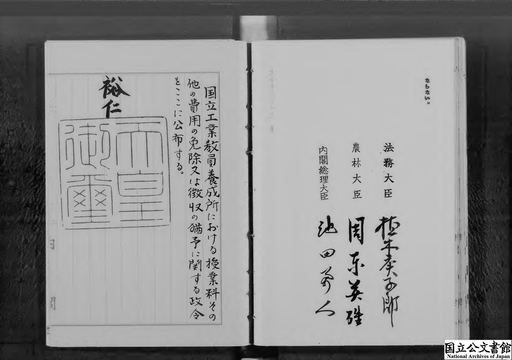 ならない。
法務大臣 植木庚子郎
農林大臣 周東英雄
内閣総理大臣 池田勇人
国立工業教員養成所における授業料その
他の費用の免除又は徴収の猶予に関する政令
をここに公布する。
裕仁
天皇
御璽
国立公文書館
National Archives of Japan